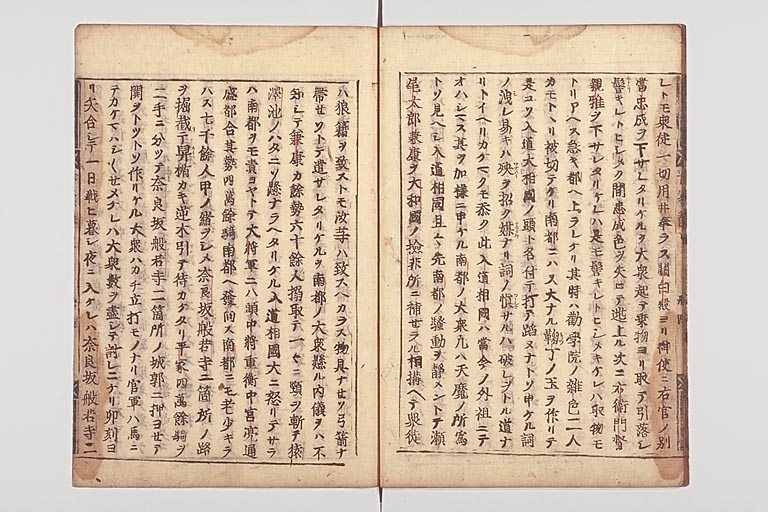 レトモ衆徒一切用井奉ラス關白殿ヨリ御使ニ右官ノ別
當忠成ヲ下サレタリケルヲ大衆起テ乗物ヨリ取テ引落シ
髻キレトヒシメク間忠成色ヲ失ヒテ逃上ル次ニ右衛門督
親雅ヲ下サレタリケレハ是モ髻キレトヒシメキケレハ取物モ
トリアヘス急キ都ヘ上ラレケリ其時ハ勸學院ノ雜色二人
カモトヽリ被切テケリ南都ニハ大ナル鞠丁ノ玉ヲ作リテ
是コソ入道大相國ノ頭ト名付テ打テ蹈ナトソ申ケル詞
ノ洩レ易キハ殃ヲ招ク媒ナリ詞ノ愼サルハ破レヲトル道ナ
リトイヘリカケマクモ忝ク此入道相國ハ當今ノ外祖ニテ
オハシマス其ヲ加樣ニ申ケル南都ノ大衆凡ハ天魔ノ所爲
トソ見ヘシ入道相國且々先南都ノ騷動ヲ靜メントテ瀬
尾太郎兼康ヲ大和國ノ撿非所ニ補セラル相構ヘテ衆徒
ハ狼籍ヲ致ストモ汝等ハ致スヘカラス物具ナセソ弓箭ナ
帶セソトテ遣サレタリケルヲ南都ノ大衆懸ル内儀ヲハ不
知シテ兼康カ餘勢六十餘人搦取テ一々ニ頸ヲ斬テ猿
澤池ノハタニソ懸ナラヘタリケル入道相國大ニ怒リテサラ
ハ南都ヲモ責ヨヤトテ大將軍ニハ頭中將重衡中宮亮通
盛都合其勢四萬餘騎南都ヘ發向ス南都ニモ老少キラ
ハス七千餘人甲ノ緒ヲシメ奈良坂般若寺二箇所ノ路
ヲ掘截テ掻楯カキ逆木引テ待カケタリ平家四萬餘騎ヲ
二手ニ分ツテ奈良坂般若寺二箇所ノ城郭ニ押ヨセテ
閧ヲトツトソ作リケル大衆ハカチ立打モノナリ官軍ハ馬ニ
テカケマハシ〱セメケレハ大衆數ヲ盡シテ討レニケリ卯刻ヨ
リ矢合シテ一日戰ヒ暮シ夜ニ入ケレハ奈良坂般若寺二